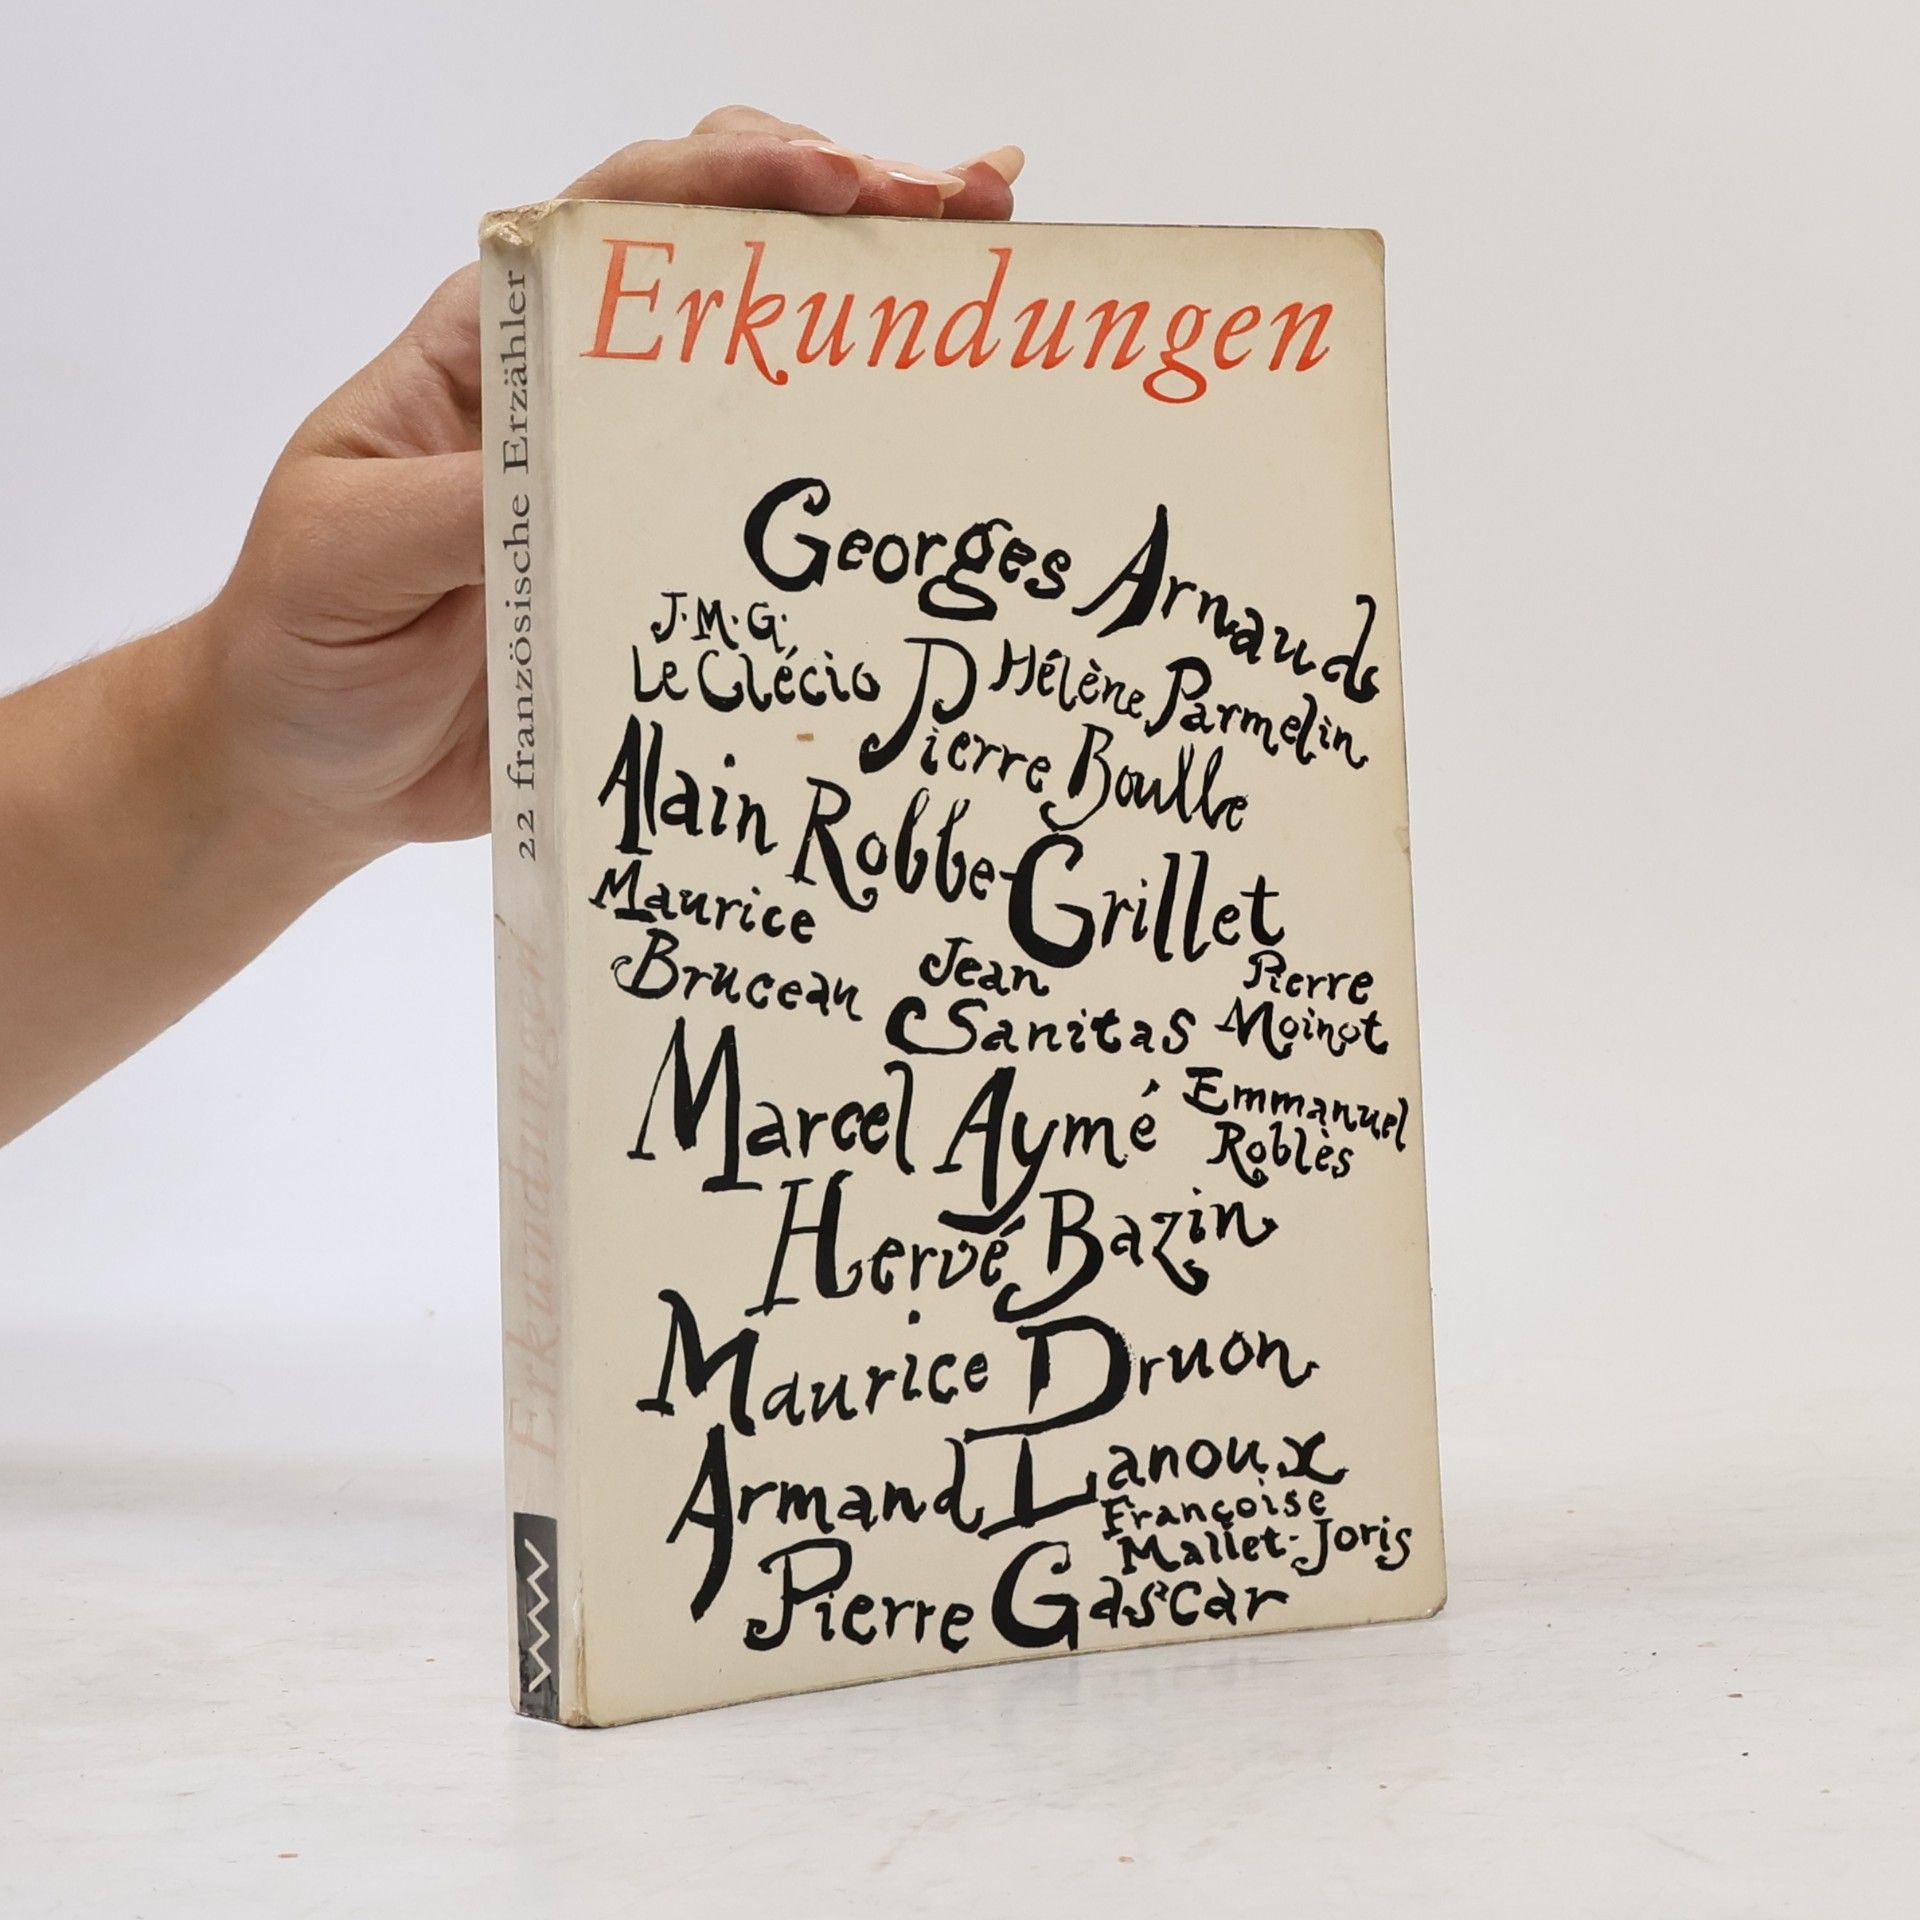 Erkundungen
Georges Arnaud
J.M.G.
Le Clécio
Hélène Parmelin
Pierre Boulle
Alain Robbe-Grillet
Maurice
Bruceau
Jean
Sanitas
Pierre
Moinot
Marcel Aymé
Emmanuel
Roblès
Hervé Bazin
Maurice Druon
Armand Lanoux
Françoise
Mallet-Joris
Pierre Gascar
Erkundungen 22 französische Erzähler